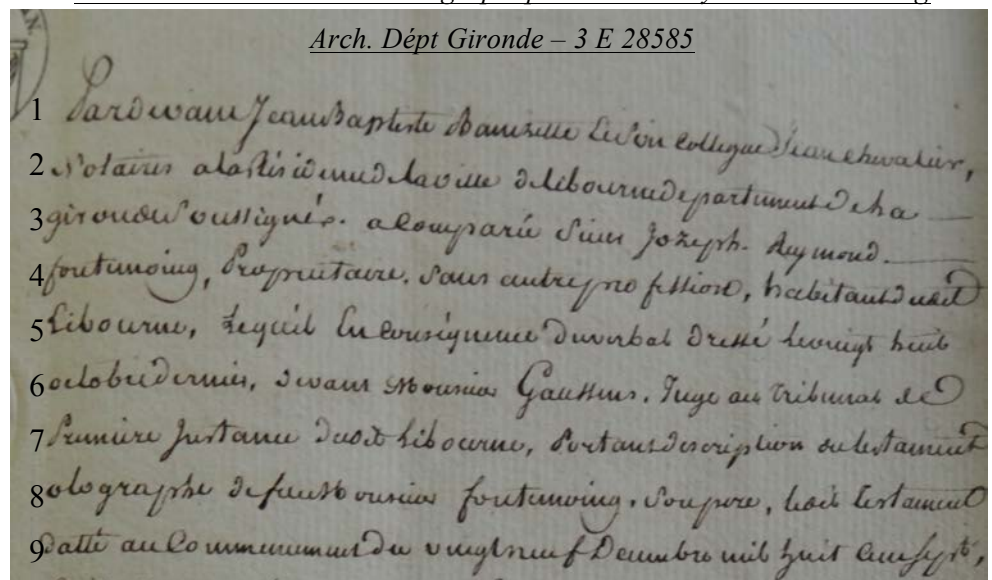 Arch. Dépt Gironde – 3 E 28585
1 Pardevant Jean Baptiste et Son Collegue Jean chevalier,
2 Notaires a la Residence de la ville de libourne departement de la
3 gironde Soussignés. a Comparu Sieur Jozeph. Reymond.
4 fontemoing, Propriétaire. Sans autre profession, habitant dudit
5 Libourne, Lequel En Conséquence du verbal dressé le vingt huit
6 octobre dernier, devant Monsieur Juge au Tribunal de
7 Première Instance dudit Libourne, Portant description du testament
8 olographe de feu Monsieur fontemoing. Son pere, Ledit testament
9 datté au Commencement du vingt neuf Decembre mil huit Cent sept,